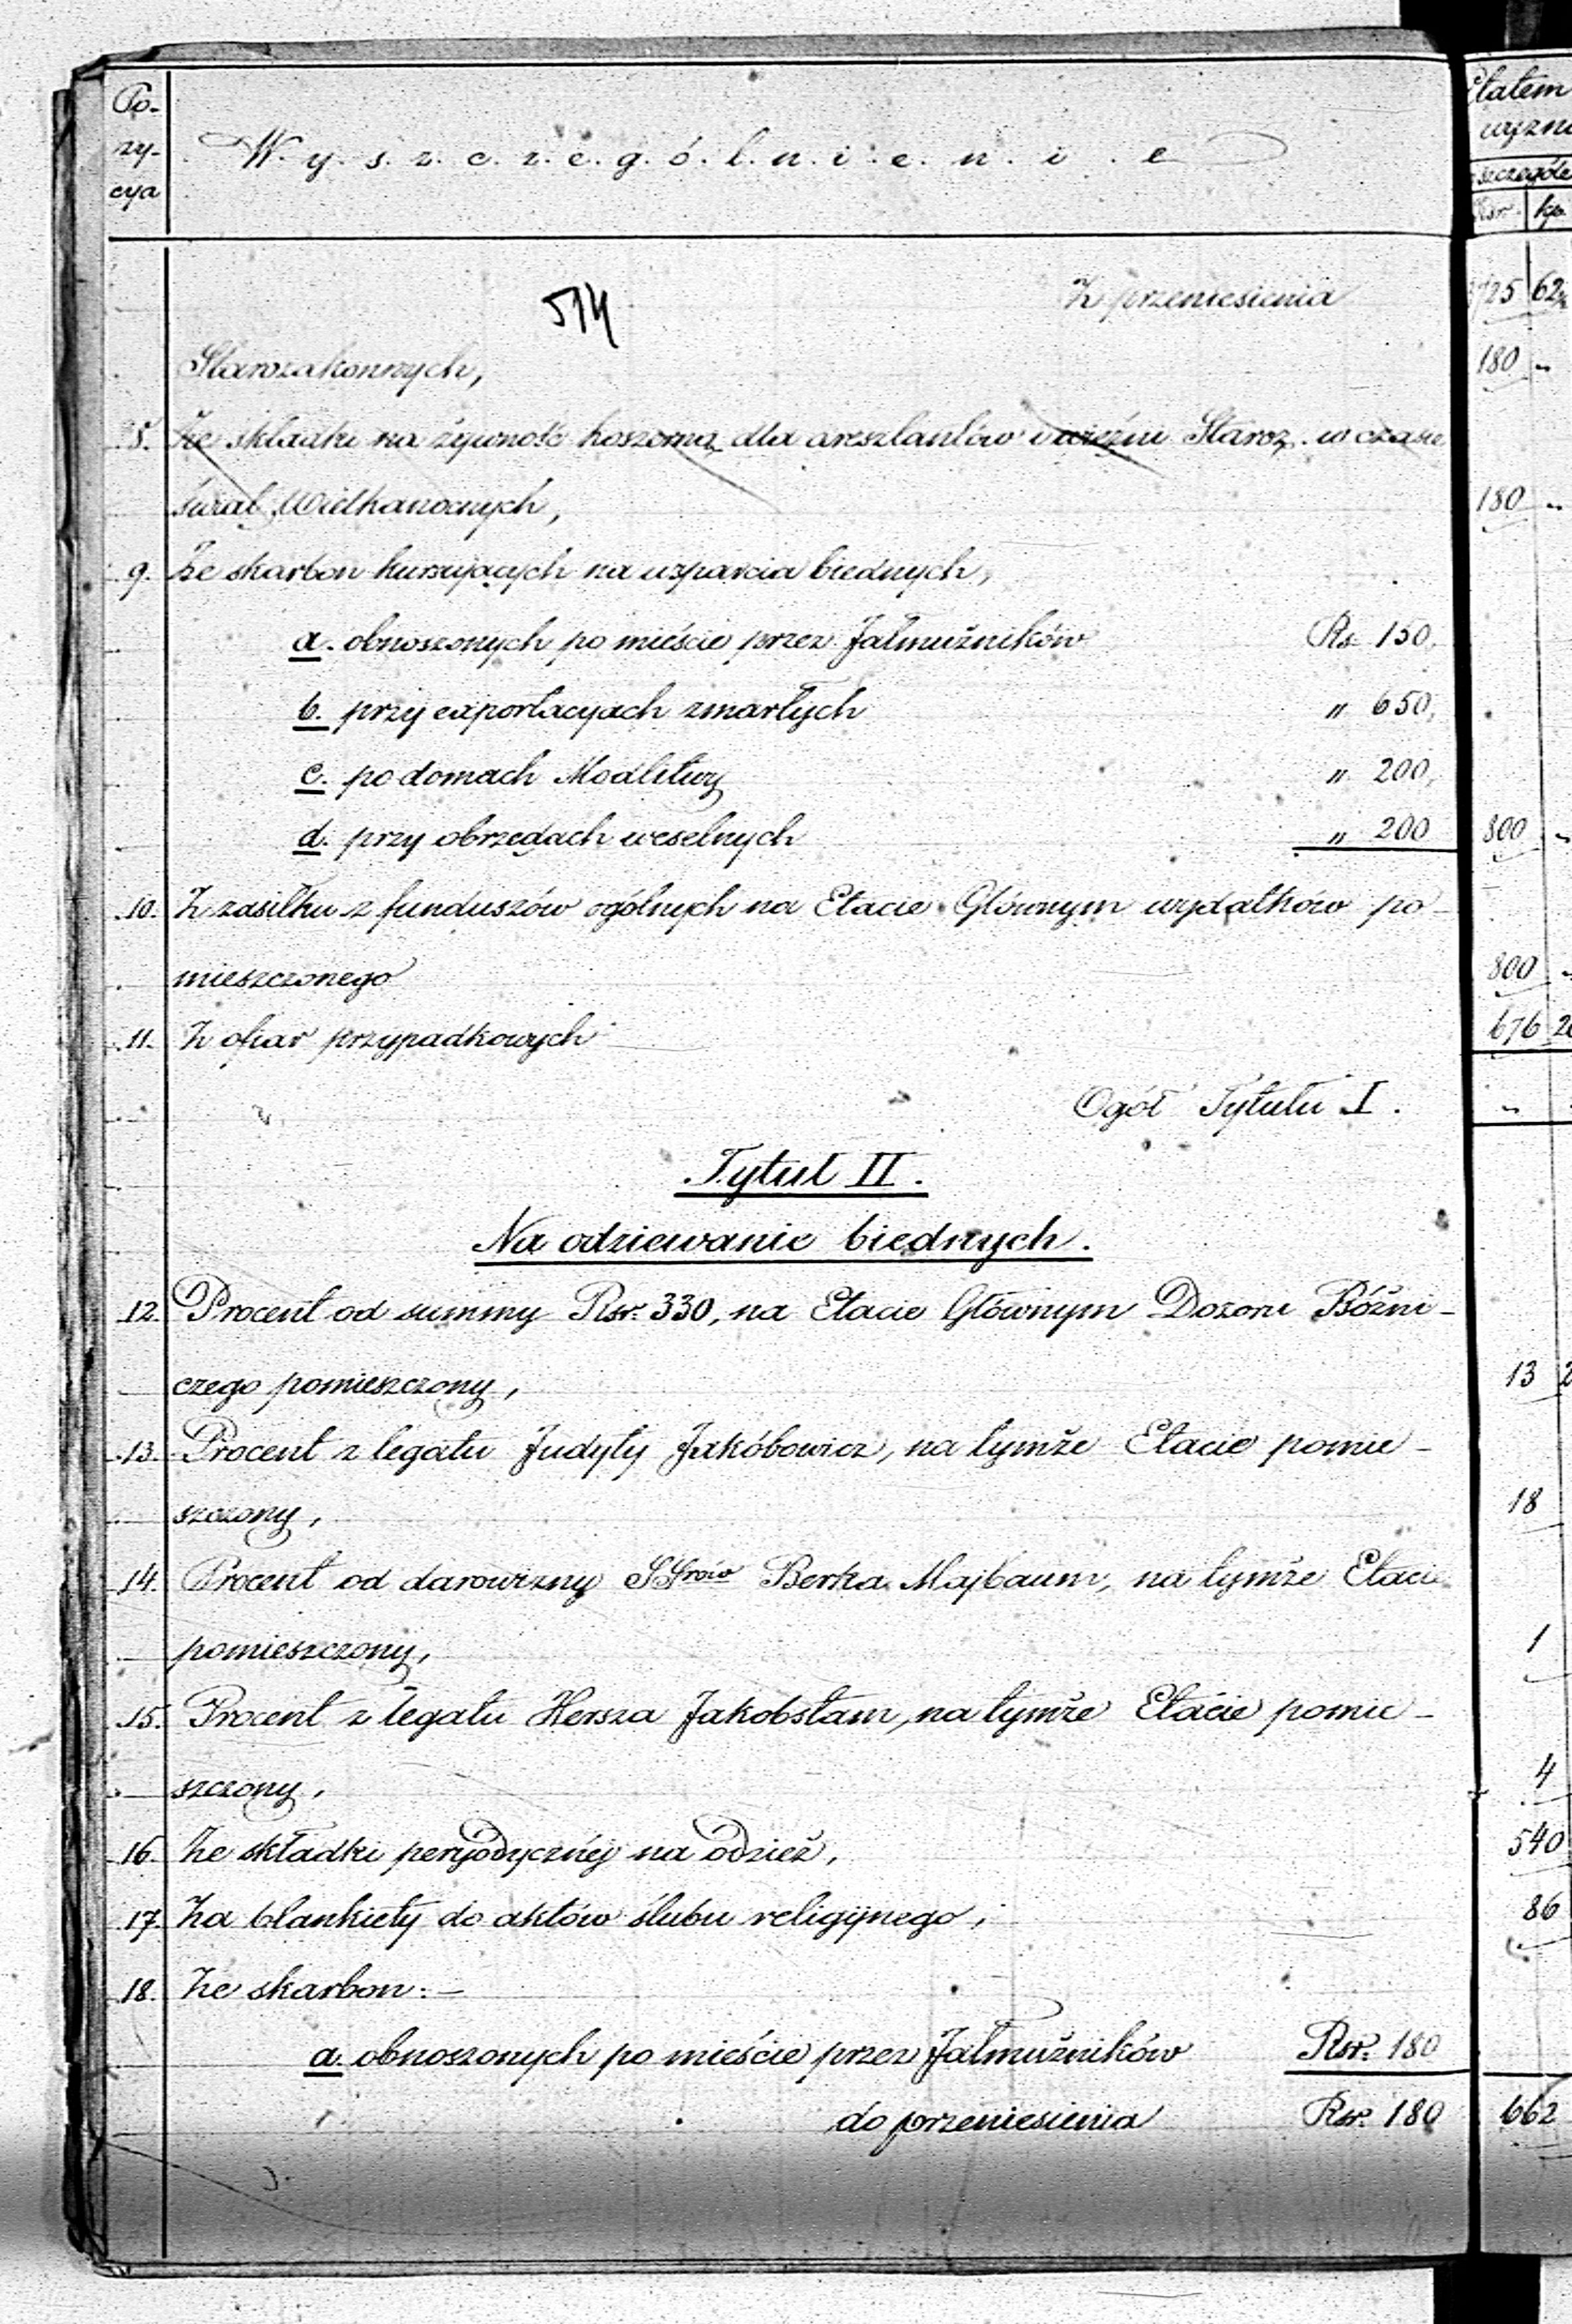 Po-
zy-
cya
W.y.s.z.c.z.e.g.ó.l.n.i.e.n.i.e
Etatem
szczegóło
Rsr. kp.
514
Z przeniesienia
725 62½
Starozakonnych,
180 "
8. Ze składki na żywność koszerną dla aresztantów i więźni Staroz. w czasie
świąt Wielkanocnych,
180 "
9. Ze skarbon kursujących na wsparcia biednych,
a. obnoszonych po mieście przez Jałmużników Rs. 150,
b. przy exportacyach zmarłych " 650,
c. po domach Modlitwy " 200,
d. przy obrzędach weselnych " 200
800 "
10. Z zasiłku z funduszów ogólnych na Etacie Głównym wydatków po-
mieszczonego
800 "
11. Z ofiar przypadkowych
676 20
Ogół Tytułu I.
"
Tytuł II.
Na odziewanie biednych.
12. Procent od summy Rsr. 330, na Etacie Głównym Dozoru Bóźni-
czego pomieszczony,
13 2
13. Procent z legatu Judyty Jakóbowicz, na tymże Etacie pomie-
szczony,
18
14. Procent od darowizny SSrów Berka Majbaum, na tymże Etacie
pomieszczony,
1
15. Procent z legatu Hersza Jakobstam, na tymże Etacie pomie-
szczony,
4
16. Ze składki peryodycznéj na odzież,
540
17. Za blankiety do aktów ślubu religijnego,
86
18. Ze skarbon: —
a. obnoszonych po mieście przez Jałmużników Rsr. 180
do przeniesienia Rsr. 180
662